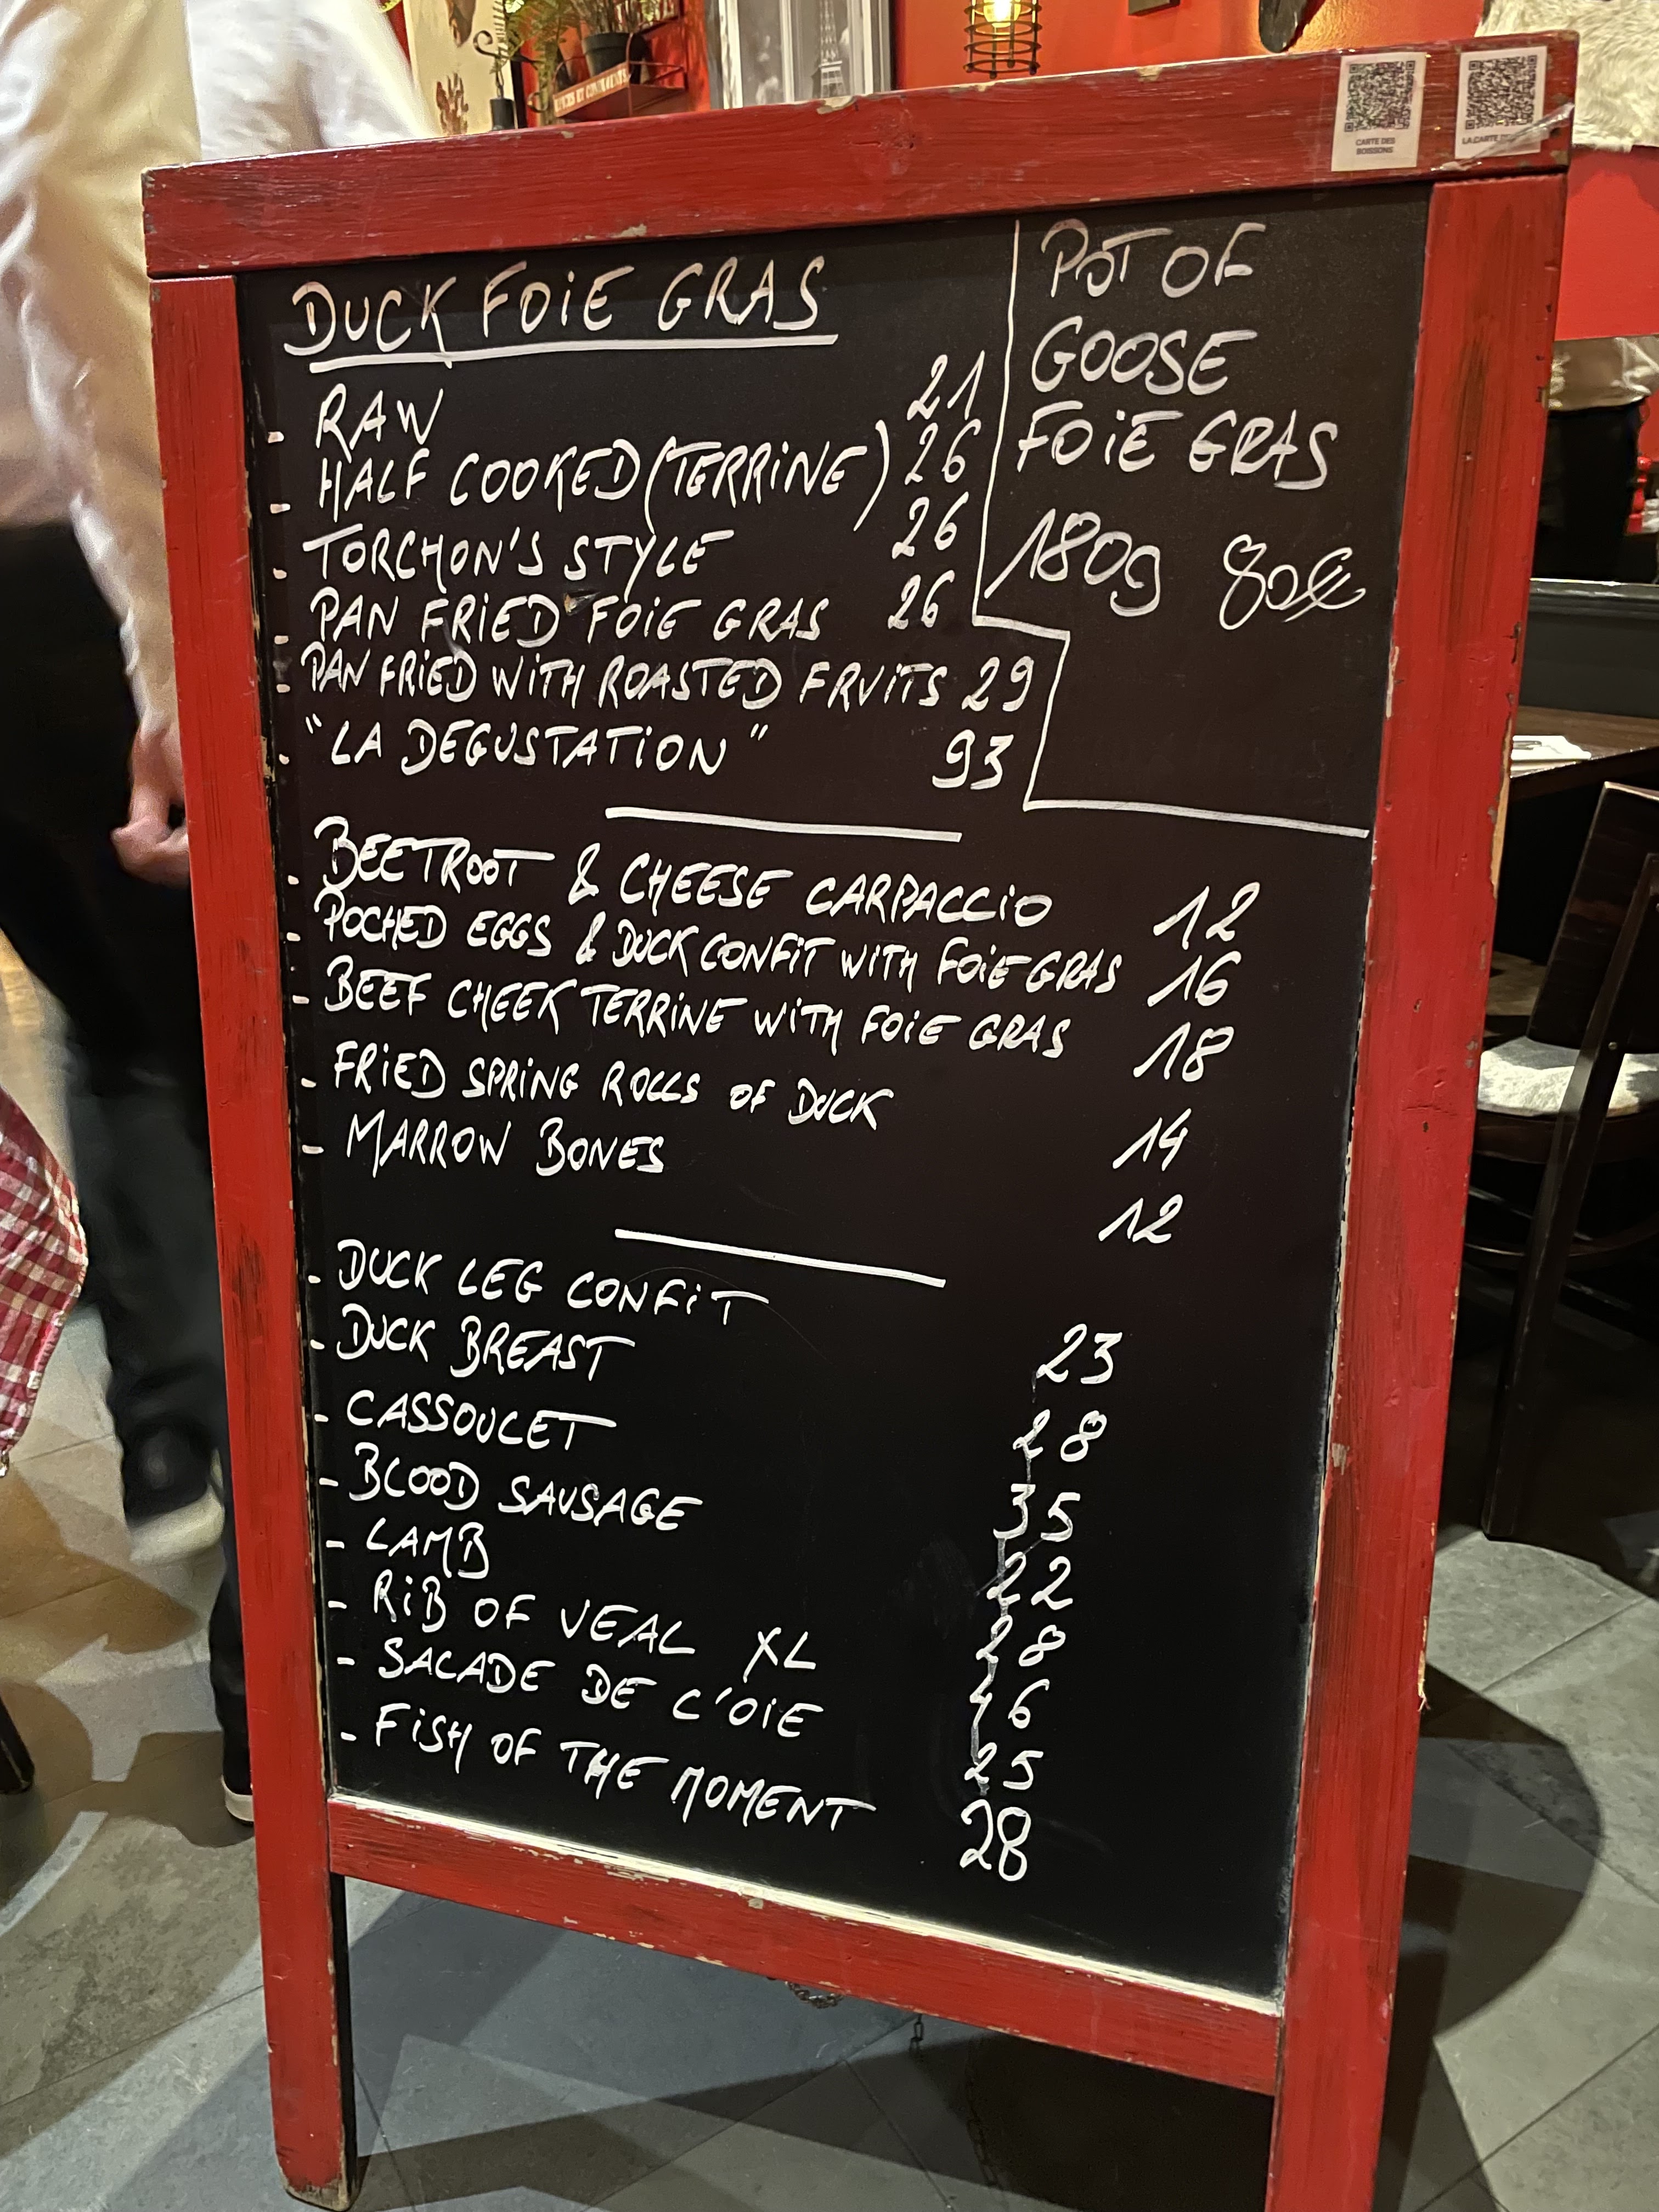 CARTE DES
BOISSONS
LA CARTE
DUCK FOIE GRAS
- RAW 21
- HALF COOKED (TERRINE) 26
- TORCHON'S STYLE 26
- PAN FRIED FOIE GRAS 26
- PAN FRIED WITH ROASTED FRUITS 29
- "LA DEGUSTATION" 93
POT OF
GOOSE
FOIE GRAS
180g 80€
- BEETROOT & CHEESE CARPACCIO 12
- POCHED EGGS & DUCK CONFIT WITH FOIE GRAS 16
- BEEF CHEEK TERRINE WITH FOIE GRAS 18
- FRIED SPRING ROLLS OF DUCK 14
- MARROW BONES 12
- DUCK LEG CONFIT 23
- DUCK BREAST 28
- CASSOULET 35
- BLOOD SAUSAGE 22
- LAMB 28
- RIB OF VEAL XL 46
- SALADE DE L'OIE 25
- FISH OF THE MOMENT 28